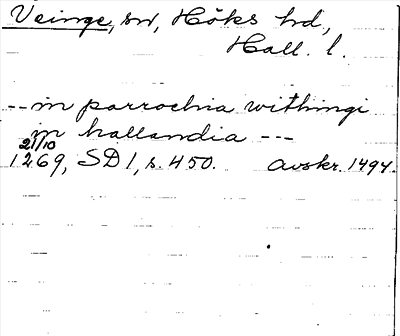 Veinge, sn, Höks hd,
Hall. l.
-- in parrochia withingi
in hallandia ---
21/10
1269, SD 1, s. 450. Avskr. 1494.